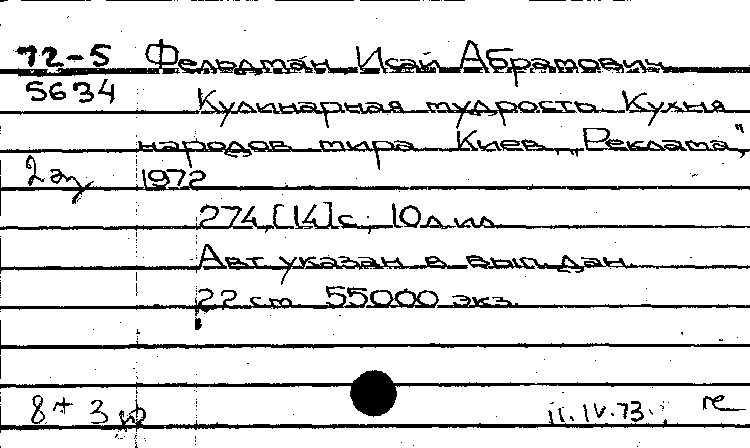 72-5 Фельдман, Исай Абрамович.
5634 Кулинарная мудрость. Кухня
народов мира. Киев, „Реклама",
2 эк 1972.
274, [14] с.; 10 л. ил.
Авт. указан в вып. дан.
22 см. 55000 экз.
8+ 3
11.IV.73.